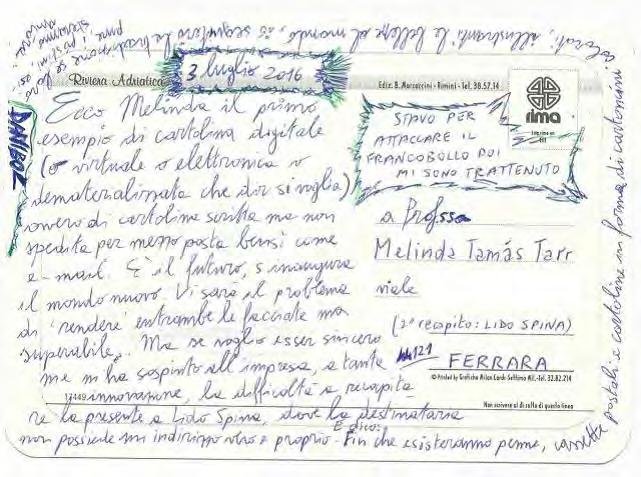 Riviera Adriatica
3 luglio 2016
Ediz. B. Marzocchini - Rimini - Tel. 30.57.14
rima
DANIBOL
STAVO PER
ATTACCARE IL
FRANCOBOLLO POI
MI SONO TRATTENUTO
Ecco Melinda il primo
esempio di cartolina digitale
(o virtuale o elettronica o
dematerializzata che dir si voglia)
ovvero di cartolina scritta ma non
spedita per mezzo posta bensì come
e-mail. È il futuro, s'inaugura
il mondo nuovo. Vi sarà il problema
di 'rendere' entrambe le facciate ma
superabile. Ma se voglio esser sincero
me m'ha sospinto all'impresa, a tanta
innovazione, la difficoltà a recapita-
re la presente a Lido Spina, dove la destinataria
non possiede un indirizzo vero e proprio. E dico: Fin che esisteranno penne, cassette
postali e cartoline in forma di cartoncini
colorati, illustranti le bellezze al mondo,
a Prof.ssa
Melinda Tamás Tarr
viale
(2° recapito: LIDO SPINA)
121 FERRARA
© Printed by Grafiche Milan Lardi Settimo Mil. - Tel. 32.82.214
17449
Non scrivere al di sotto di questa linea